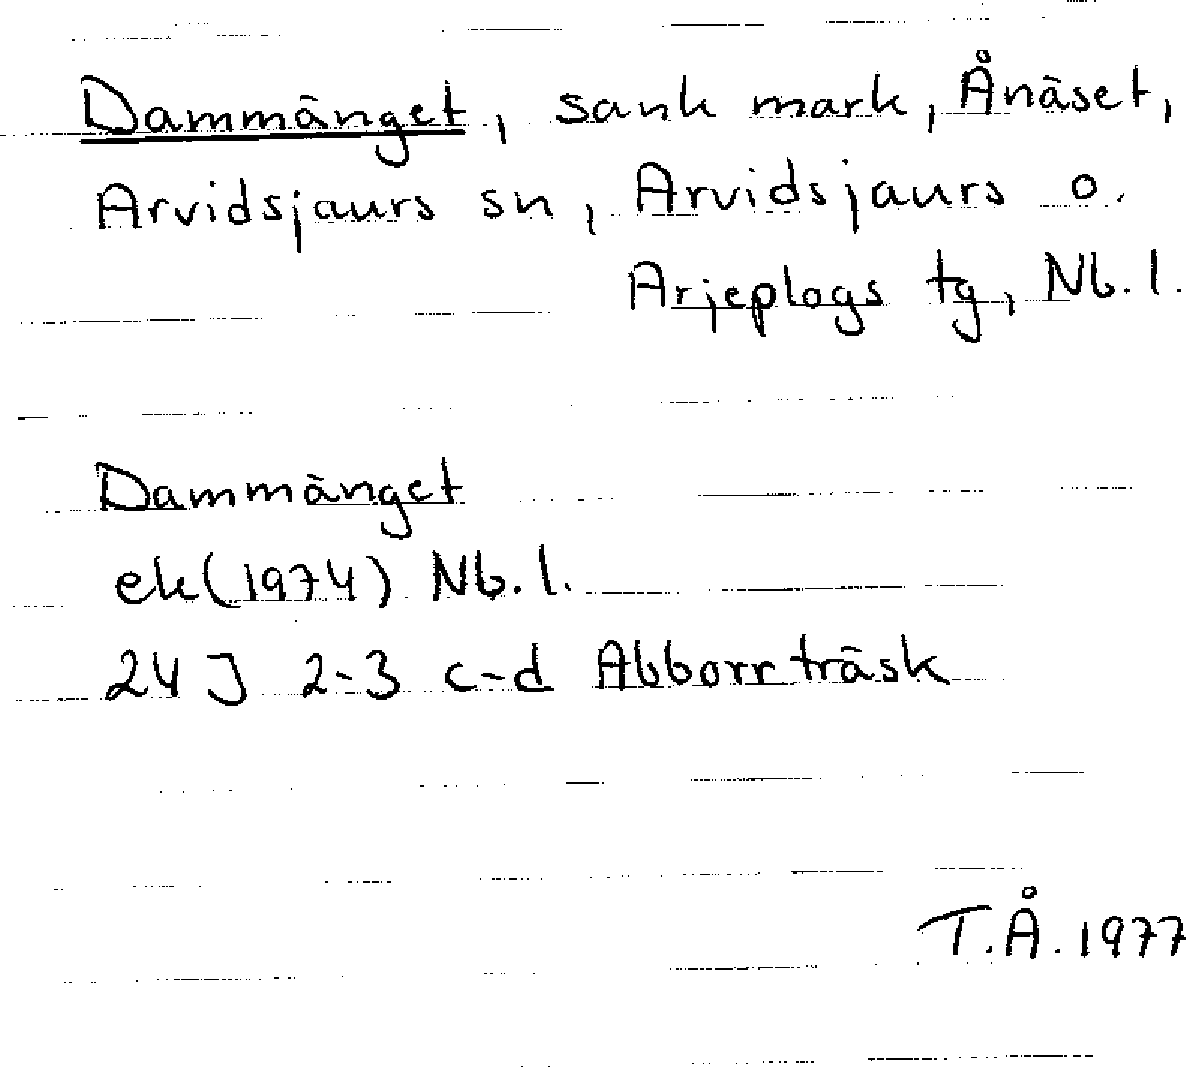 Dammänget, sank mark, Ånäset,
Arvidsjaurs sn, Arvidsjaurs o.
Arjeplogs tg, Nb. l.
Dammänget
ek(1974) Nb. l.
24 J 2-3 c-d Abborrträsk
T.Å. 1977